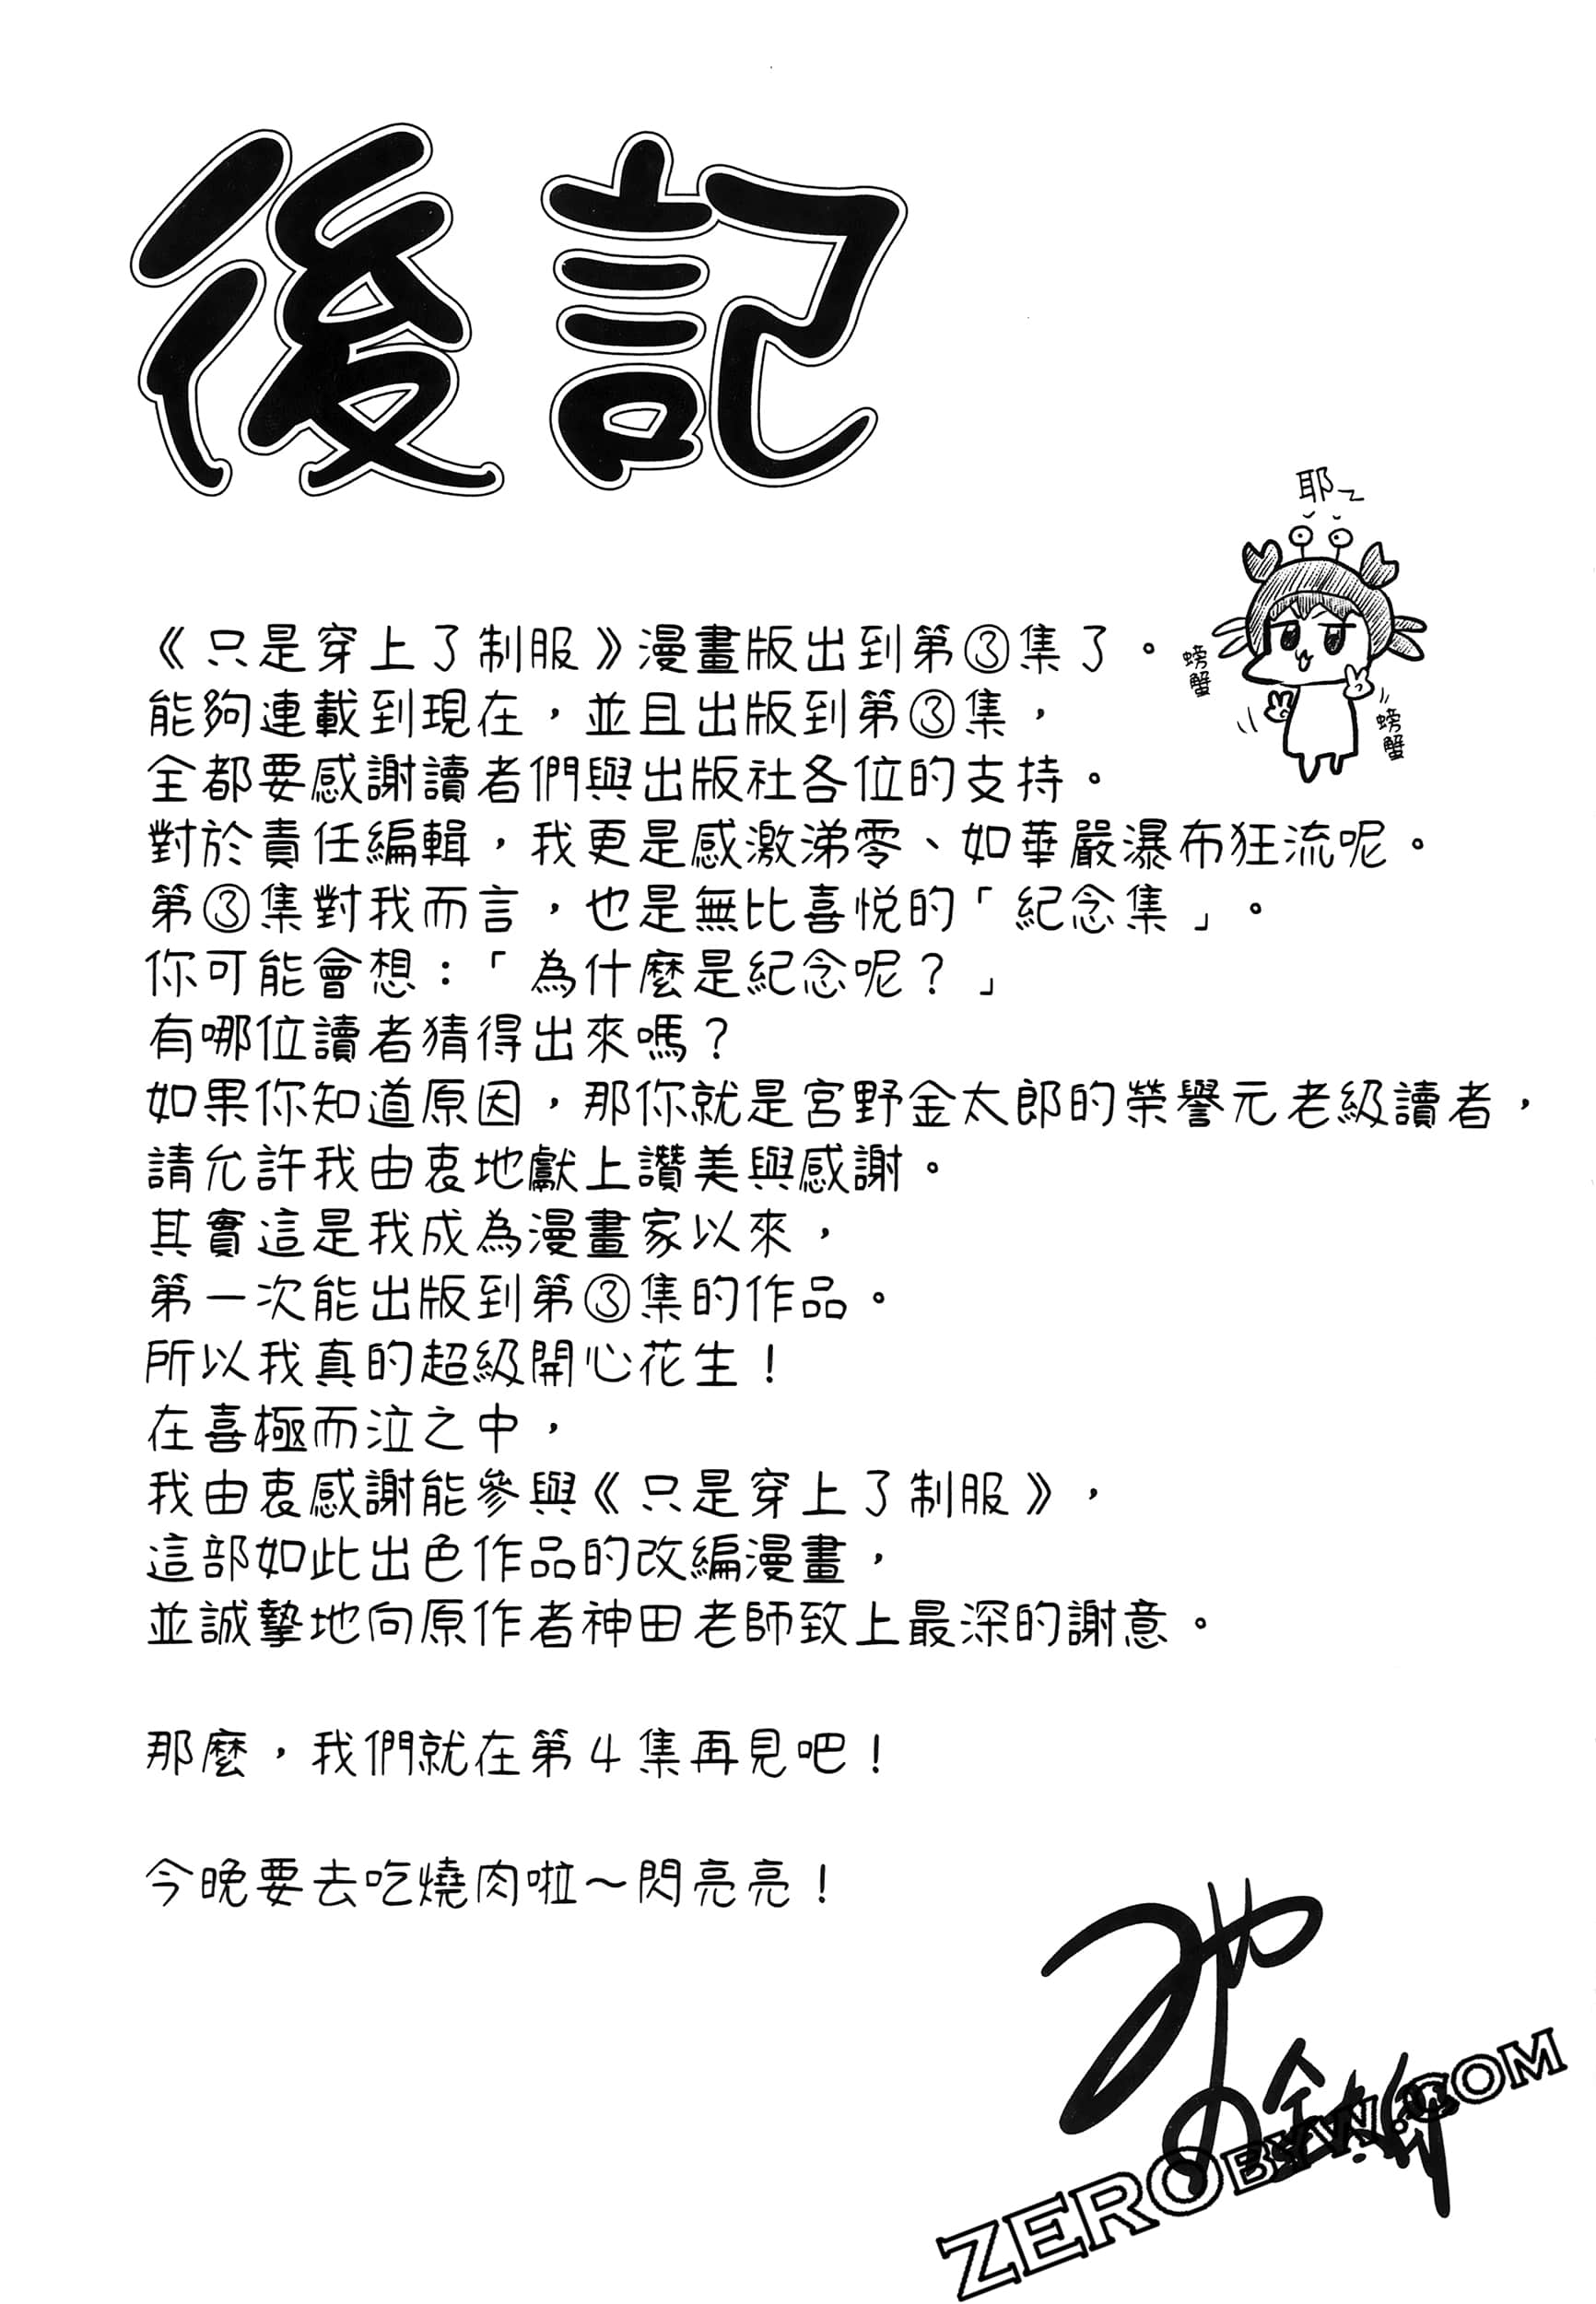 後記
耶~
螃蟹
螃蟹
《只是穿上了制服》漫畫版出到第③集了。
能夠連載到現在，並且出版到第③集，
全都要感謝讀者們與出版社各位的支持。
對於責任編輯，我更是感激涕零、如華嚴瀑布狂流呢。
第③集對我而言，也是無比喜悅的「紀念集」。
你可能會想：「為什麼是紀念呢？」
有哪位讀者猜得出來嗎？
如果你知道原因，那你就是宮野金太郎的榮譽元老級讀者，
請允許我由衷地獻上讚美與感謝。
其實這是我成為漫畫家以來，
第一次能出版到第③集的作品。
所以我真的超級開心花生！
在喜極而泣之中，
我由衷感謝能參與《只是穿上了制服》，
這部如此出色作品的改編漫畫，
並誠摯地向原作者神田老師致上最深的謝意。
那麼，我們就在第4集再見吧！
今晚要去吃燒肉啦～閃亮亮！